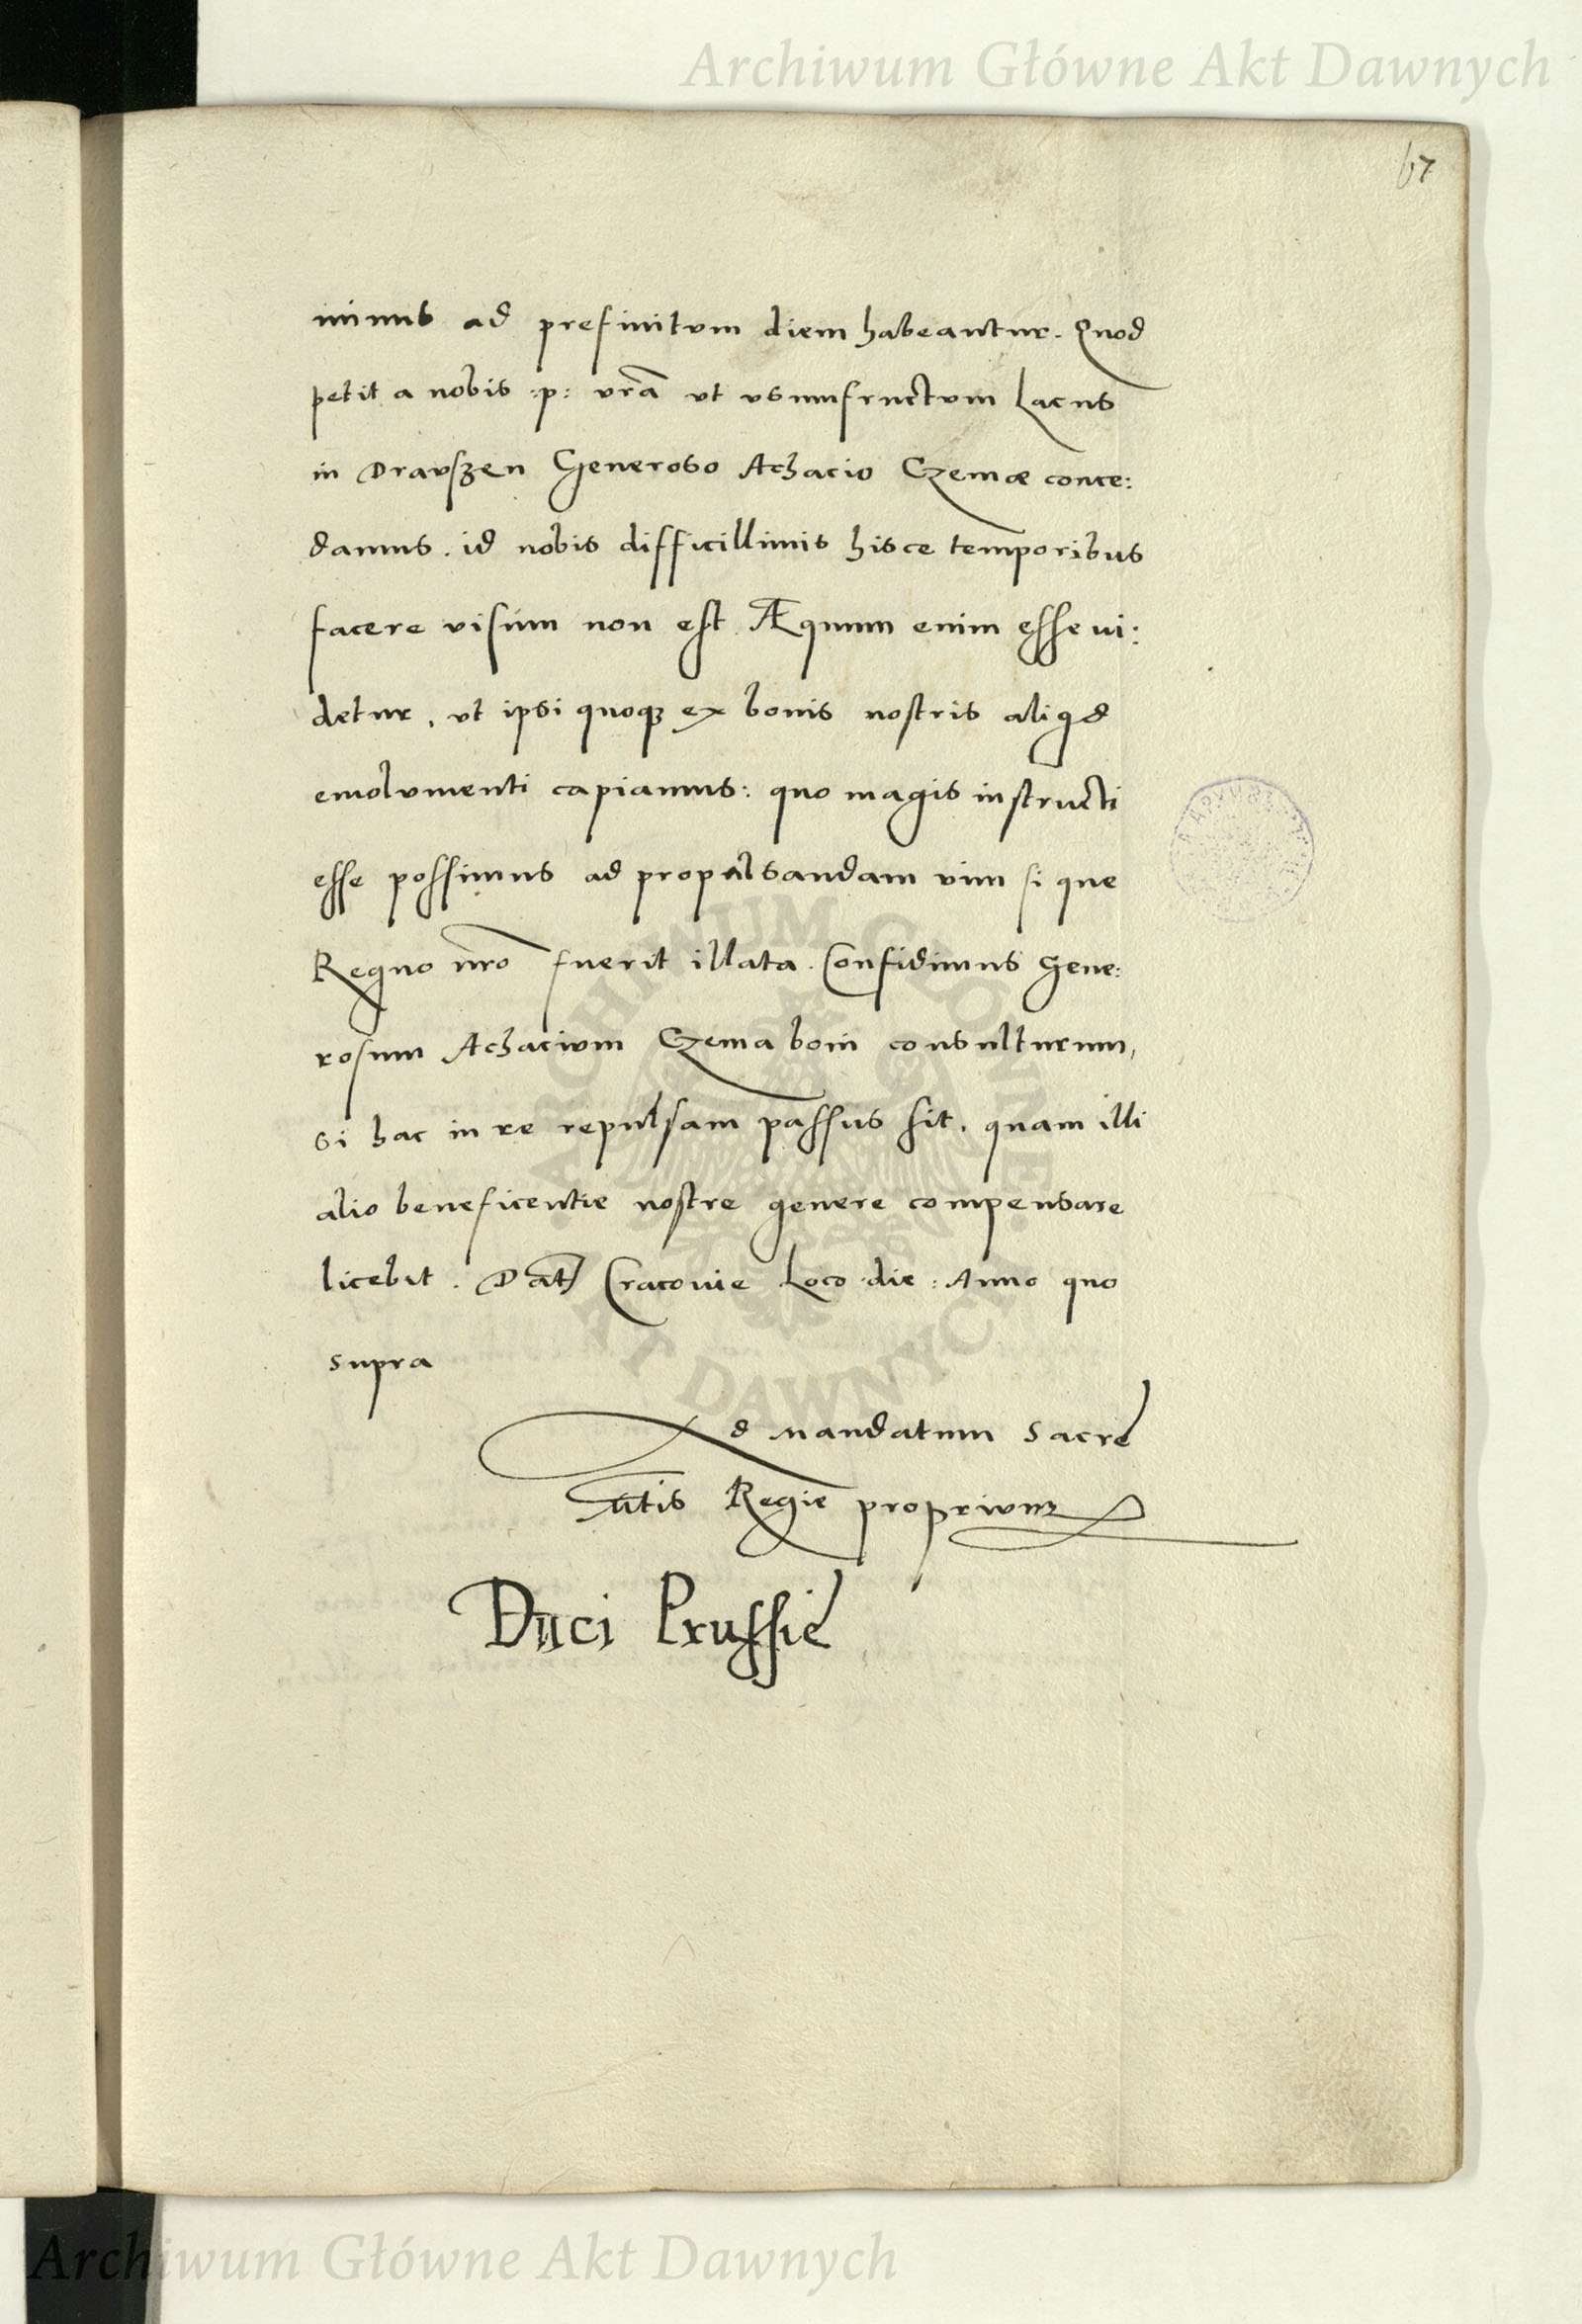 Archiwum Główne Akt Dawnych
67
minus ad prefinitvm diem habeantur. Quod
petit a nobis :p: vrã vt vsumfructvm Lacus
in Dravszen Generoso Achacio Czemæ conce:
damus. id nobis difficillimis hisce temporibus
facere visum non est. Æquum enim esse ui:
detur, vt ipsi quoqȝ ex bonis nostris aliqd
emolvmenti capiamus: quo magis instructi
esse possimus ad propulsandam vim si que
Regno nrõ fuerit illata. Confidimus Gene:
rosum Achacivm Czema boni consulturum,
si hac in re repulsam passus sit, quam illi
alio beneficentie nostre genere compensare
licebit. Dat Cracovie Loco die: Anno quo
supra
Ad Mandatum Sacre
Mtis Regie proprivm
Duci Prussie
ARCHIWUM GŁÓWNE AKT DAWNYCH
Archiwum Główne Akt Dawnych